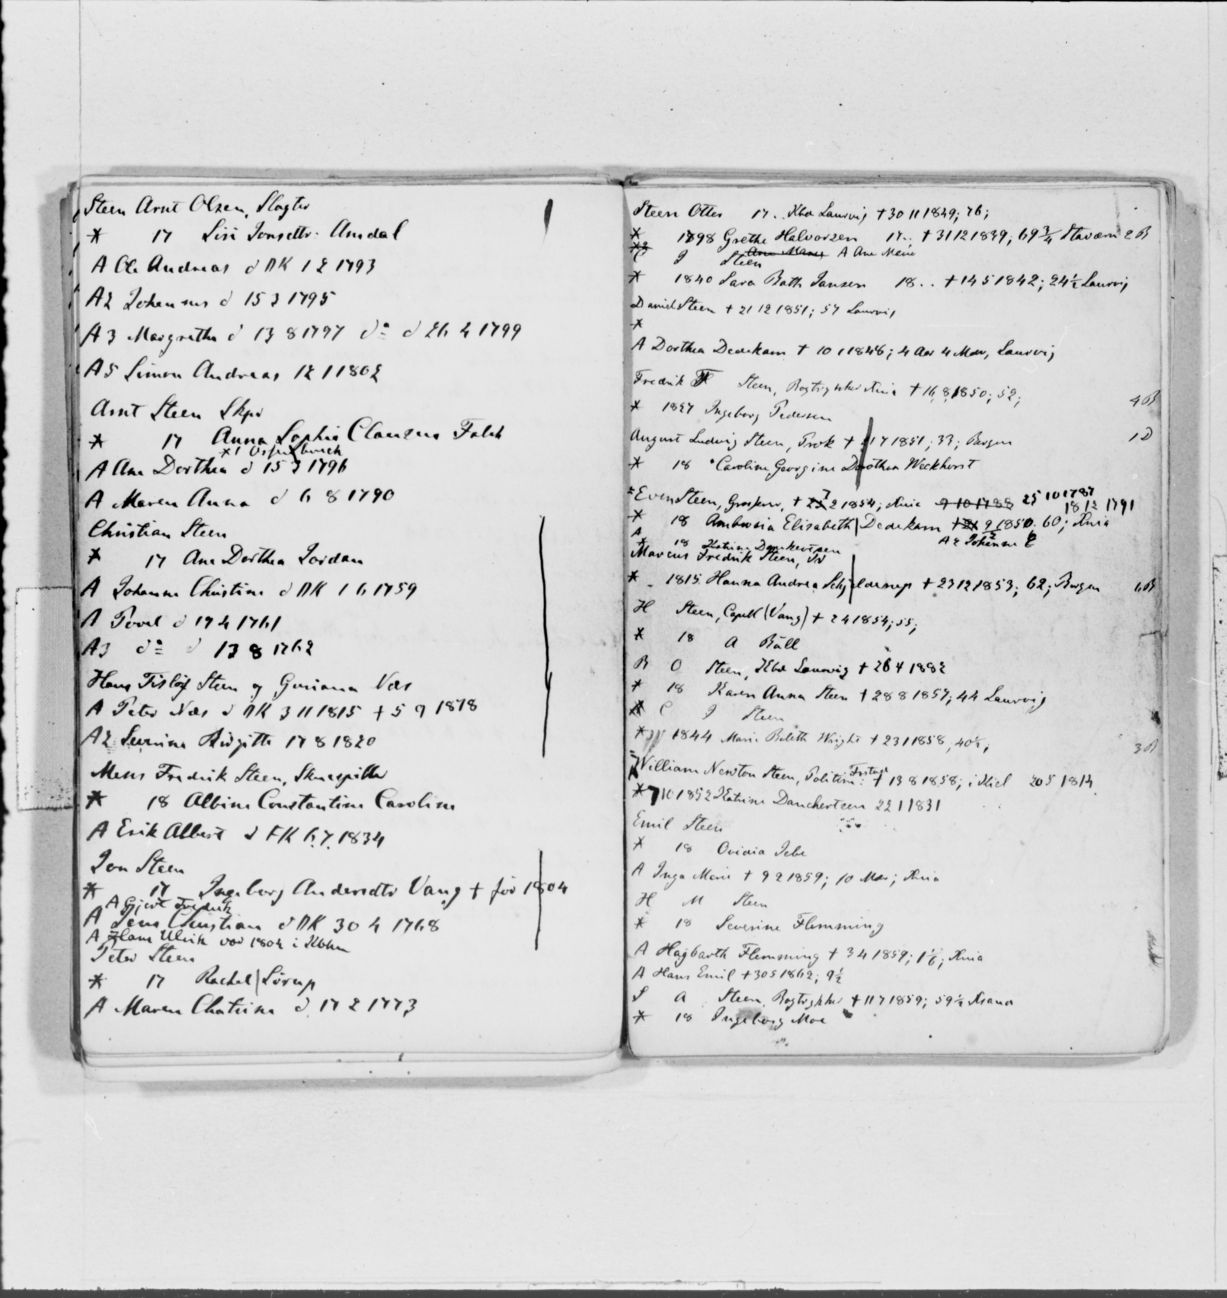 Steen Arnt Olsen, Slagter
* 17 Siri Jonsdtr. Amdal
A Ole Andreas d NK 1 2 1793
A2 Johannes d 15 3 1795
A3 Margrethe d 13 8 1797 do d 26 4 1799
A5 Simon Andreas 12 1 1802
Arnt Steen Skpr
* 17 Anna Sophie Clausen Falch
A Ane Dorthea d 15 3 1796
A Maren Anna d 6 8 1790
Christian Steen
* 17 Ane Dorthea Jordan
A Johanne Christine d NK 1 6 1759
A Povel d 19 4 1761
A3 do d 13 8 1762
Hans Tislöf Steen og Guriana Næs
A Peter Næs d NK 3 11 1815 + 5 9 1878
A2 Severine Birgitte 17 8 1820
Mens Fredrik Steen, Skuespiller
* 18 Albine Constantine Caroline
A Erik Albert d FK 6.7.1834
Jon Steen
* 17 Ingeborg Andersdtr Vang + før 1804
A Gjert Fredrik
A Jens Christian d NK 30 4 1768
A Hans Ulrik var 1804 i Kbhn
Peter Steen
* 17 Rachel Sörup
A Maren Chatrine d. 17 2 1773
Steen Otter 17.. Kbd Laurvig + 30 11 1849; 76;
* 1798 Grethe Halvorsen 17.. + 31 12 1839, 69 3/4 Staværn 2 B
A Ane Marie
C J Steen
* 1840 Sara Bath Jansen 18.. + 14 5 1842; 24 1/2 Laurvig
David Steen + 21 12 1851; 57 Laurvig
*
A Dorthea Dedekam + 10 1 1846; 4 Aar 4 Mdr, Laurvig
Fredrik F Steen, Bogtrykker Kria + 16 8 1850; 52; 4 B
* 1827 Ingeborg Pedersen
August Ludvig Steen, Prok + 17 1851; 33; Bergen 1 D
* 18 Caroline Georgine Dorothea Weckhorst
Even Steen, Grosserer, + 2 1854, Kria 9 10 1788 25 10 1787
18 12 1791
* 18 Ambrosia Elisabeth Dedekam + 9 1850. 60; Kria
A 2 Johanne E
* 18 Katrine Danckertsen
Marcus Fredrik Steen,
* 1815 Hanna Andrea Schjelderup + 23 12 1853; 62; Bergen 6 B
H Steen, Capell (Vang) + 2 4 1854; 55;
* 18 A Bull
B O Steen, Kbd Laurvig + 26 4 1882
* 18 Karen Anna Steen + 28 8 1857; 44 Laurvig
C J Steen
* 1844 Marie Bolette Wright + 23 1 1858, 40 1/2; 3 B
William Newton Steen, Politim. + 13 8 1858; i Kiel 20 5 1814
* 7 10 1852 Katrine Danchertsen 22 1 1831
Emil Steen
* 18 Ovidia Jebe
A Inga Marie + 9 2 1859; 10 Mdr; Kria
H M Steen
* 18 Severine Flemming
A Hagbarth Flemming + 3 4 1859; Kria
A Hans Emil + 30 5 1862; 9 1/2
S A Steen, Bogtrykker + 11 7 1859; 59 1/2 Krsand
* 18 Ingeborg Moe